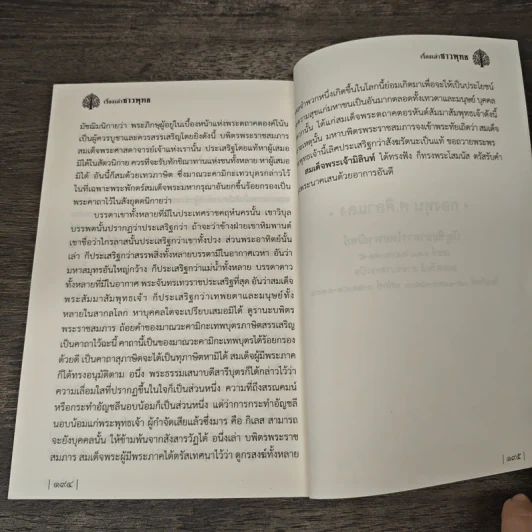 เรื่องเล่าชาวพุทธ
มัชฌิมนิกายว่า พระภิกษุผู้อยู่ในเบื้องหน้าแห่งพระตถาคตองค์โน้น
เป็นผู้ควรบูชาและควรสรรเสริญโดยยิ่งดังนี้ บพิตรพระราชสมภาร
สมเด็จพระศาสดาจารย์เจ้าแห่งเรานั้น ประเสริฐโดยแท้หาผู้เสมอ
มิได้ในสัตวนิกาย ควรที่จะรับทักขิณาทานแห่งชนทั้งหลาย หาผู้เสมอ
มิได้ อันนี้ก็สมด้วยเทวภาษิต ซึ่งมาณวะคามิกะเทวบุตรกล่าวไว้
ในที่เฉพาะพระพักตร์สมเด็จพระมหากรุณาอันยกขึ้นร้อยกรองเป็น
พระคาถาไว้ในสังยุตตนิกายว่า
บรรดาเขาทั้งหลายที่มีในประเทศราชคฤห์นครนั้น เขาวิบุล
บรรพตนั้นปรากฏว่าประเสริฐกว่า ถ้าจะว่าข้างฝ่ายเขาหิมพานต์
เขาชื่อว่าไกรลาสนั้นประเสริฐกว่าเขาทั้งปวง ส่วนพระอาทิตย์นั้น
เล่า ก็ประเสริฐกว่าสรรพสิ่งทั้งหลายบรรดามีในอากาศเวหา อันว่า
มหาสมุทรอันใหญ่กว้าง ก็ประเสริฐกว่าแม่น้ำทั้งหลาย บรรดาดาว
ทั้งหลายที่มีในอากาศ พระจันทรเทวราชประเสริฐที่สุด อันว่าสมเด็จ
พระสัมมาสัมพุทธเจ้า ก็ประเสริฐกว่าเทพยดาและมนุษย์ทั้ง
หลายในสากลโลก หาบุคคลใดจะเปรียบเสมอมิได้ ดูรานะบพิตร
พระราชสมภาร ถ้อยคำของมาณวะคามิกะเทพบุตรภาษิตสรรเสริญ
เป็นคาถาไว้ฉะนี้ คาถานี้เป็นของมาณวะคามิกะเทพบุตรได้ร้อยกรอง
ด้วยดี เป็นคาถาสุภาษิตจะได้เป็นทุภาษิตหามิได้ สมเด็จผู้มีพระภาค
ก็ได้ทรงอนุมัติตาม อนึ่ง พระธรรมเสนาบดีสารีบุตรก็ได้กล่าวไว้ว่า
ความเลื่อมใสที่ปรากฏขึ้นในใจก็เป็นส่วนหนึ่ง ความที่ถึงสรณคมน์
หรือกระทำอัญชลีนอบน้อมก็เป็นส่วนหนึ่ง แต่ว่าการกระทำอัญชลี
นอบน้อมแก่พระพุทธเจ้า ผู้กำจัดเสียแล้วซึ่งมาร คือ กิเลส สามารถ
จะยังบุคคลนั้น ให้ข้ามพ้นจากสังสารวัฏได้ อนึ่งเล่า บพิตรพระราช
สมภาร สมเด็จพระผู้มีพระภาคได้ตรัสเทศนาไว้ว่า ดูกรสงฆ์ทั้งหลาย
| ๑๙๔ |
เรื่องเล่าชาวพุทธ
พวกหนึ่งเกิดขึ้นในโลกนี้ย่อมเกิดมาเพื่อจะให้เป็นประโยชน์
ความสุขแก่มหาชนเป็นอันมากตลอดทั้งเทวดาและมนุษย์ บุคคล
นั้น ได้แก่สมเด็จพระตถาคตอรหันต์สัมมาสัมพุทธเจ้าดังนี้
เหตุนั้น มหาบพิตรพระราชสมภารจงเข้าพระทัยเถิดว่า สมเด็จ
พุทธเจ้านี้เลิศประเสริฐกว่าสังฆรัตนะเป็นแท้ ขอถวายพระพร
สมเด็จพระเจ้ามิลินท์ ได้ทรงฟัง ก็ทรงพระโสมนัส ตรัสรับคำ
พระนาคเสนด้วยอาการอันดี
| ๑๙๕ |